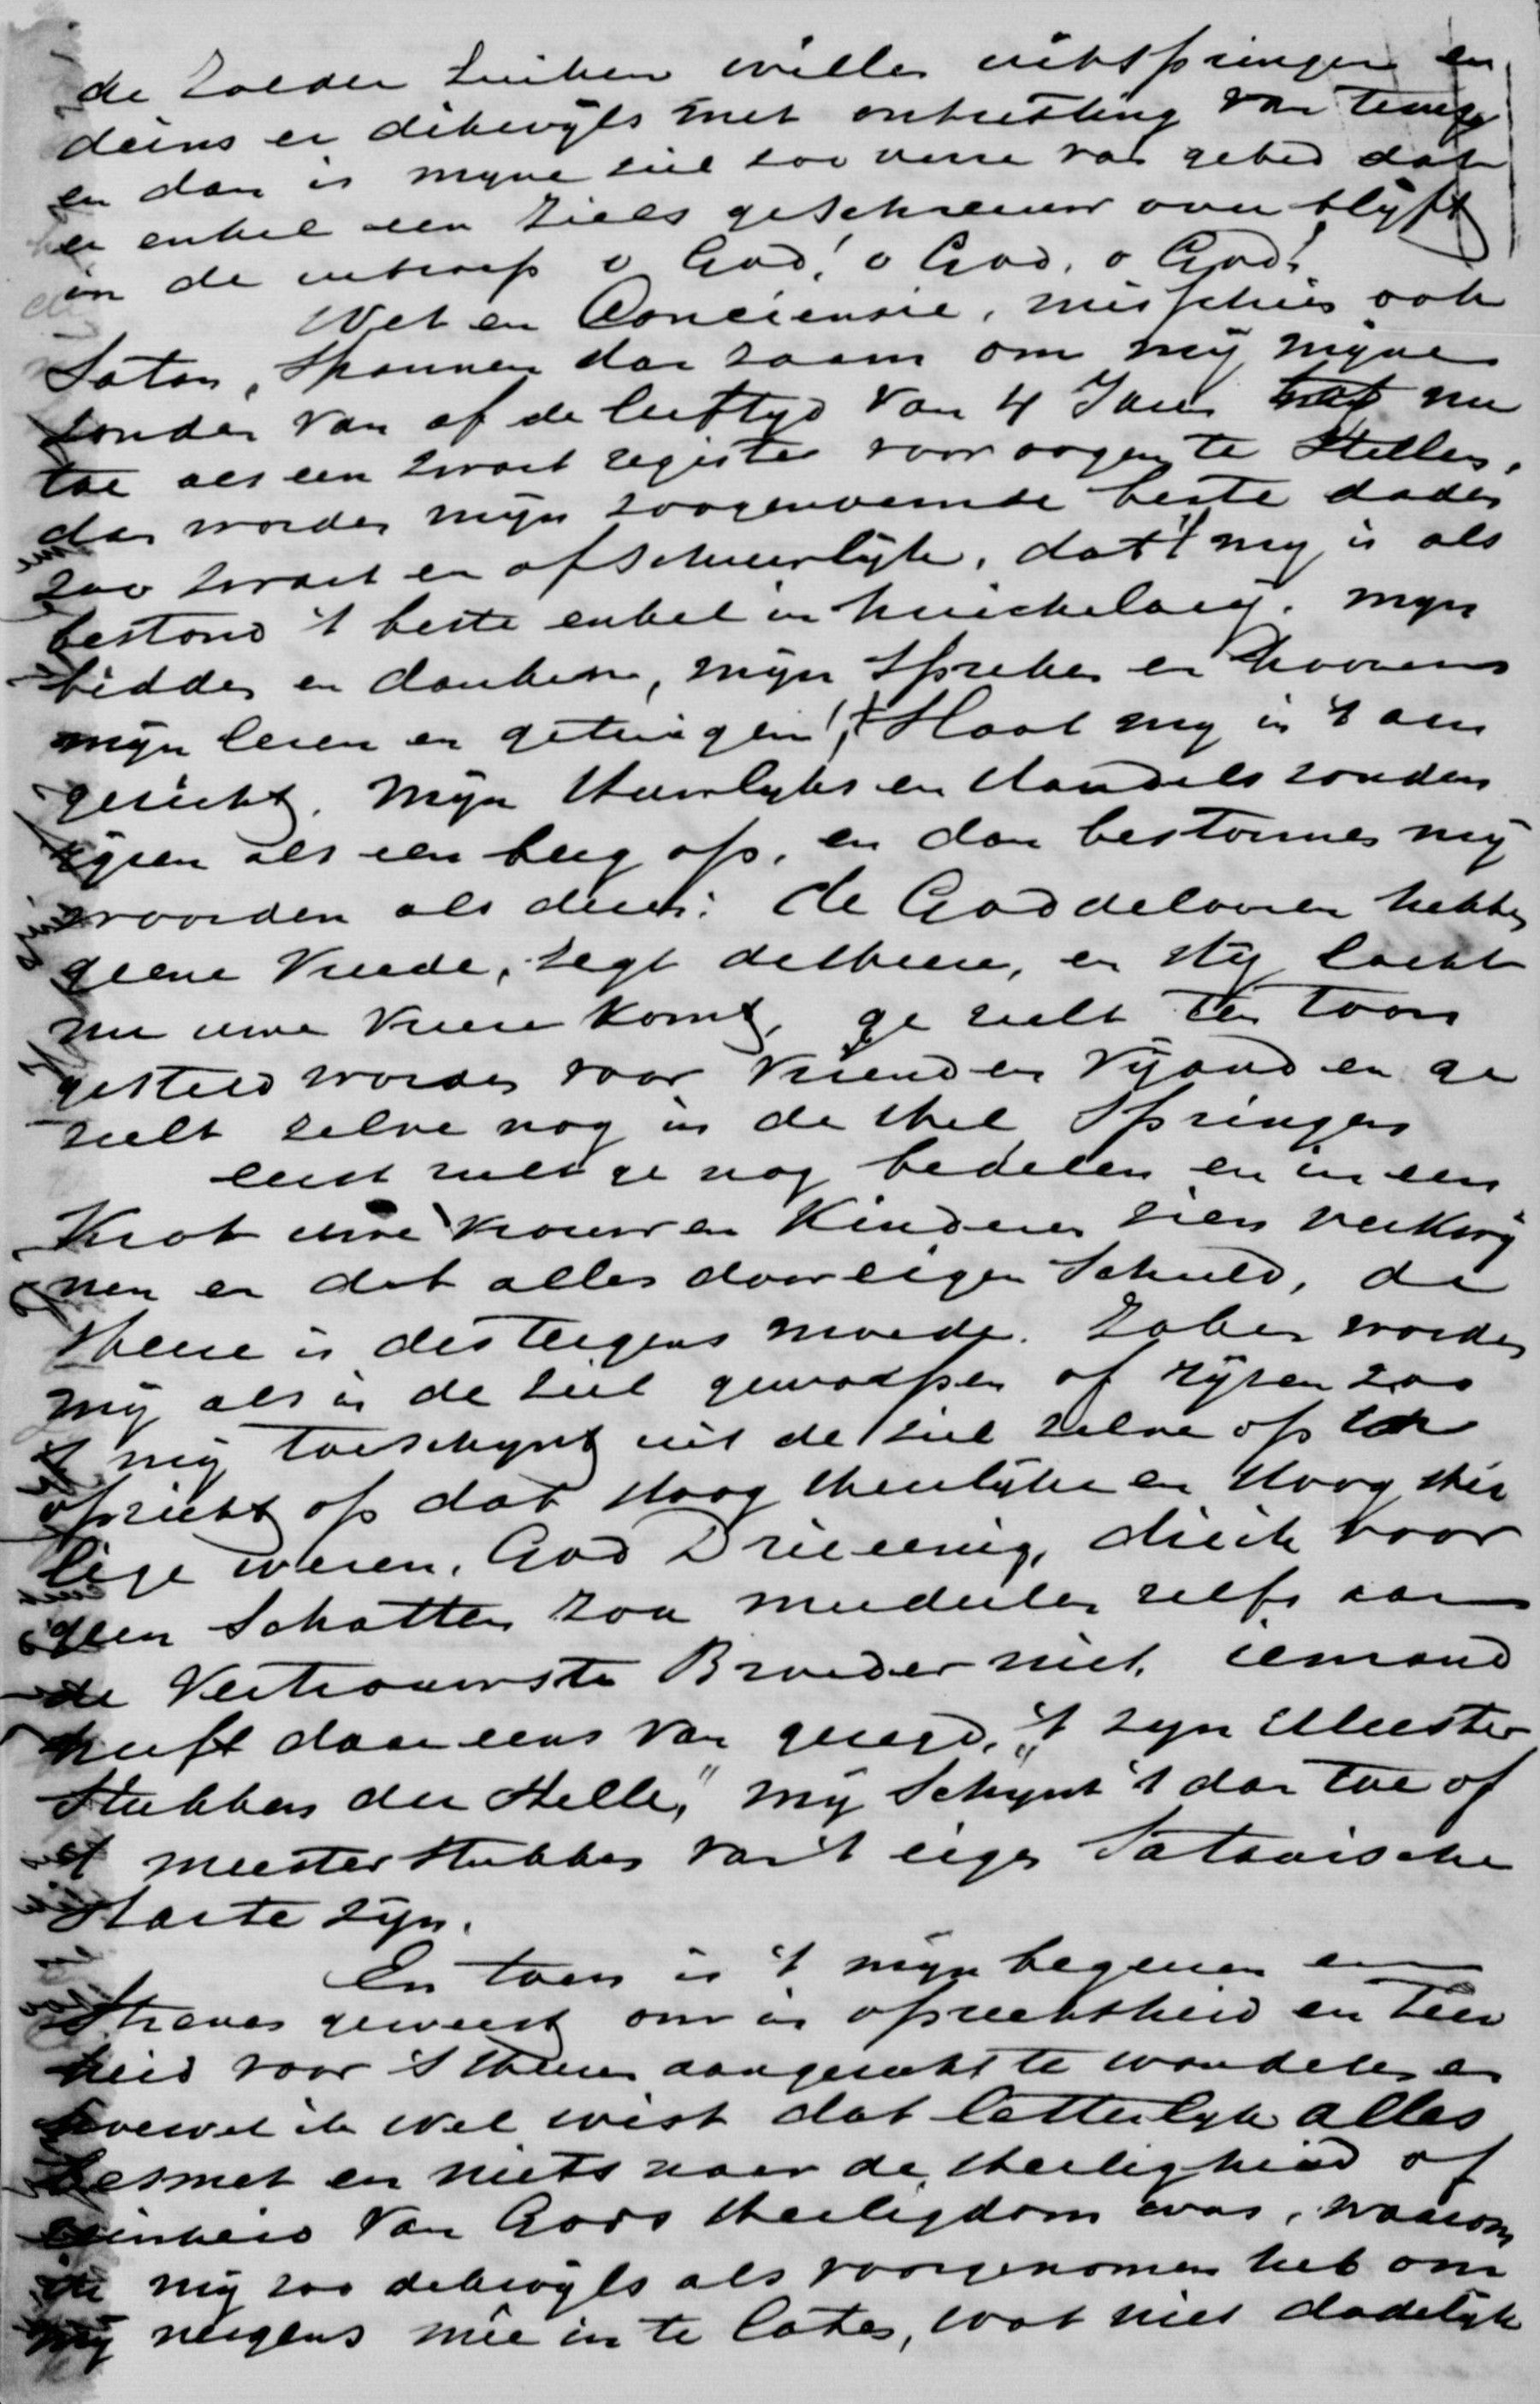 de zolder luiken willen uitspringen en
deins er dikwyls met ontzetting van terug
en dan is myne ziel zoo verre van gebed dat
er enkel een ziels geschreeuw over blyft
in de uitroep o God! o God, o God!
Wet en Conciensie, misschien ook
Satan, spannen dan zaam om my myne
zonden van af de leeftyd van 4 Jaar tot nu
toe als een zwart register voor oogen te stellen,
dan worden myn zoogenoemde beste daden
zoo zwart en afschuwelyk, dat 't my is als
bestond 't beste enkel in huichelary. myn
bidden en danken, myn spreken en hooren
myn lezen en getuigen! 't Slaat my in 't aan
gezicht. Myn Huwlyks en Handels zonden
rysen als een berg op, en dan bestormen my
woorden als deze: de Goddeloozen hebben
geene Vrede, zegt de Heere, en Hy lacht
nu uwe Vreeze komt, ge zult ten toon
gesteld worden voor Vriend en Vyand en ge
zult zelve nog in de Hel springen
eerst zult ge nog bedelen en in een
Krot uwe Vrouw en Kinderen zien verkwy
nen en dat alles door eigen Schuld, de
Heere is des tergens moede. Zaken worden
my als in de ziel geworpen of rysen zoo
't my toeschynt uit de ziel zelve op
opzicht op dat Hoog Heerlyke en Hoog Hei
lige wezen, God Drieeenig, die ik voor
geen Schatten zou mededeelen zelfs aan
de Vertrouwste Broeder niet, iemand
heeft daar eens van gezegd, "'t zyn Meester
Stukken der Helle," my Schynt 't dan toe of
't meester stukken van 't eigen Satanische
Harte zyn.
En toen is 't myn begeeren en
Streven geweest om in oprechtheid en teer
heid voor 's Heeren aangezicht te wandelen en
hoewel ik wel wist dat letterlyk alles
besmet en niets naar de Heiligheid of
reinheid van Gods Heiligdom was, waarom
ik my zoo dikwyls als voorgenomen heb om
my nergens mêe in te laten, wat niet dadelyk